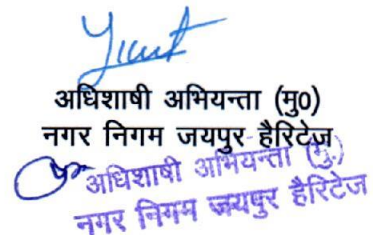 अधिशाषी अभियन्ता (मु०)
नगर निगम जयपुर हैरिटेज
अधिशाषी अभियन्ता (मु.)
नगर निगम जयपुर हैरिटेज